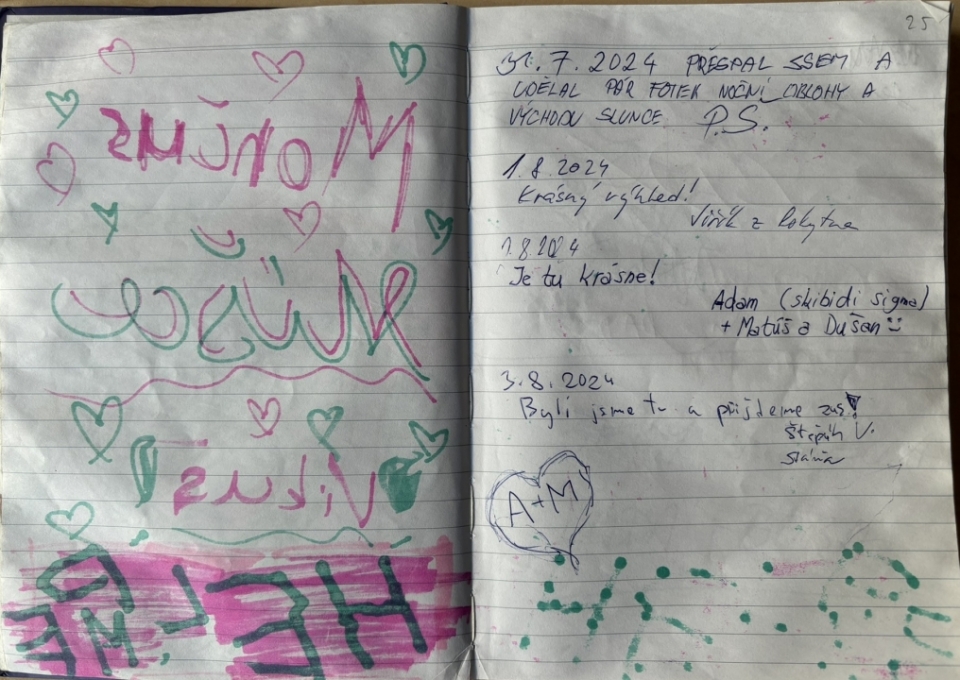 Mončus
Vikus
HELP
ME
25
31.7.2024 PŘESPAL JSEM A
UDĚLAL PÁR FOTEK NOČNÍ OBLOHY A
VÝCHODU SLUNCE P.S.
1.8.2024
Krásný výhled!
z Rokytna
1.8.2024
Je tu krásne!
Adam (skibidi sigma)
+ Matúš a Dušan
3.8.2024
Byli jsme tu a přijdeme zas!
Štěpán V.
A+M